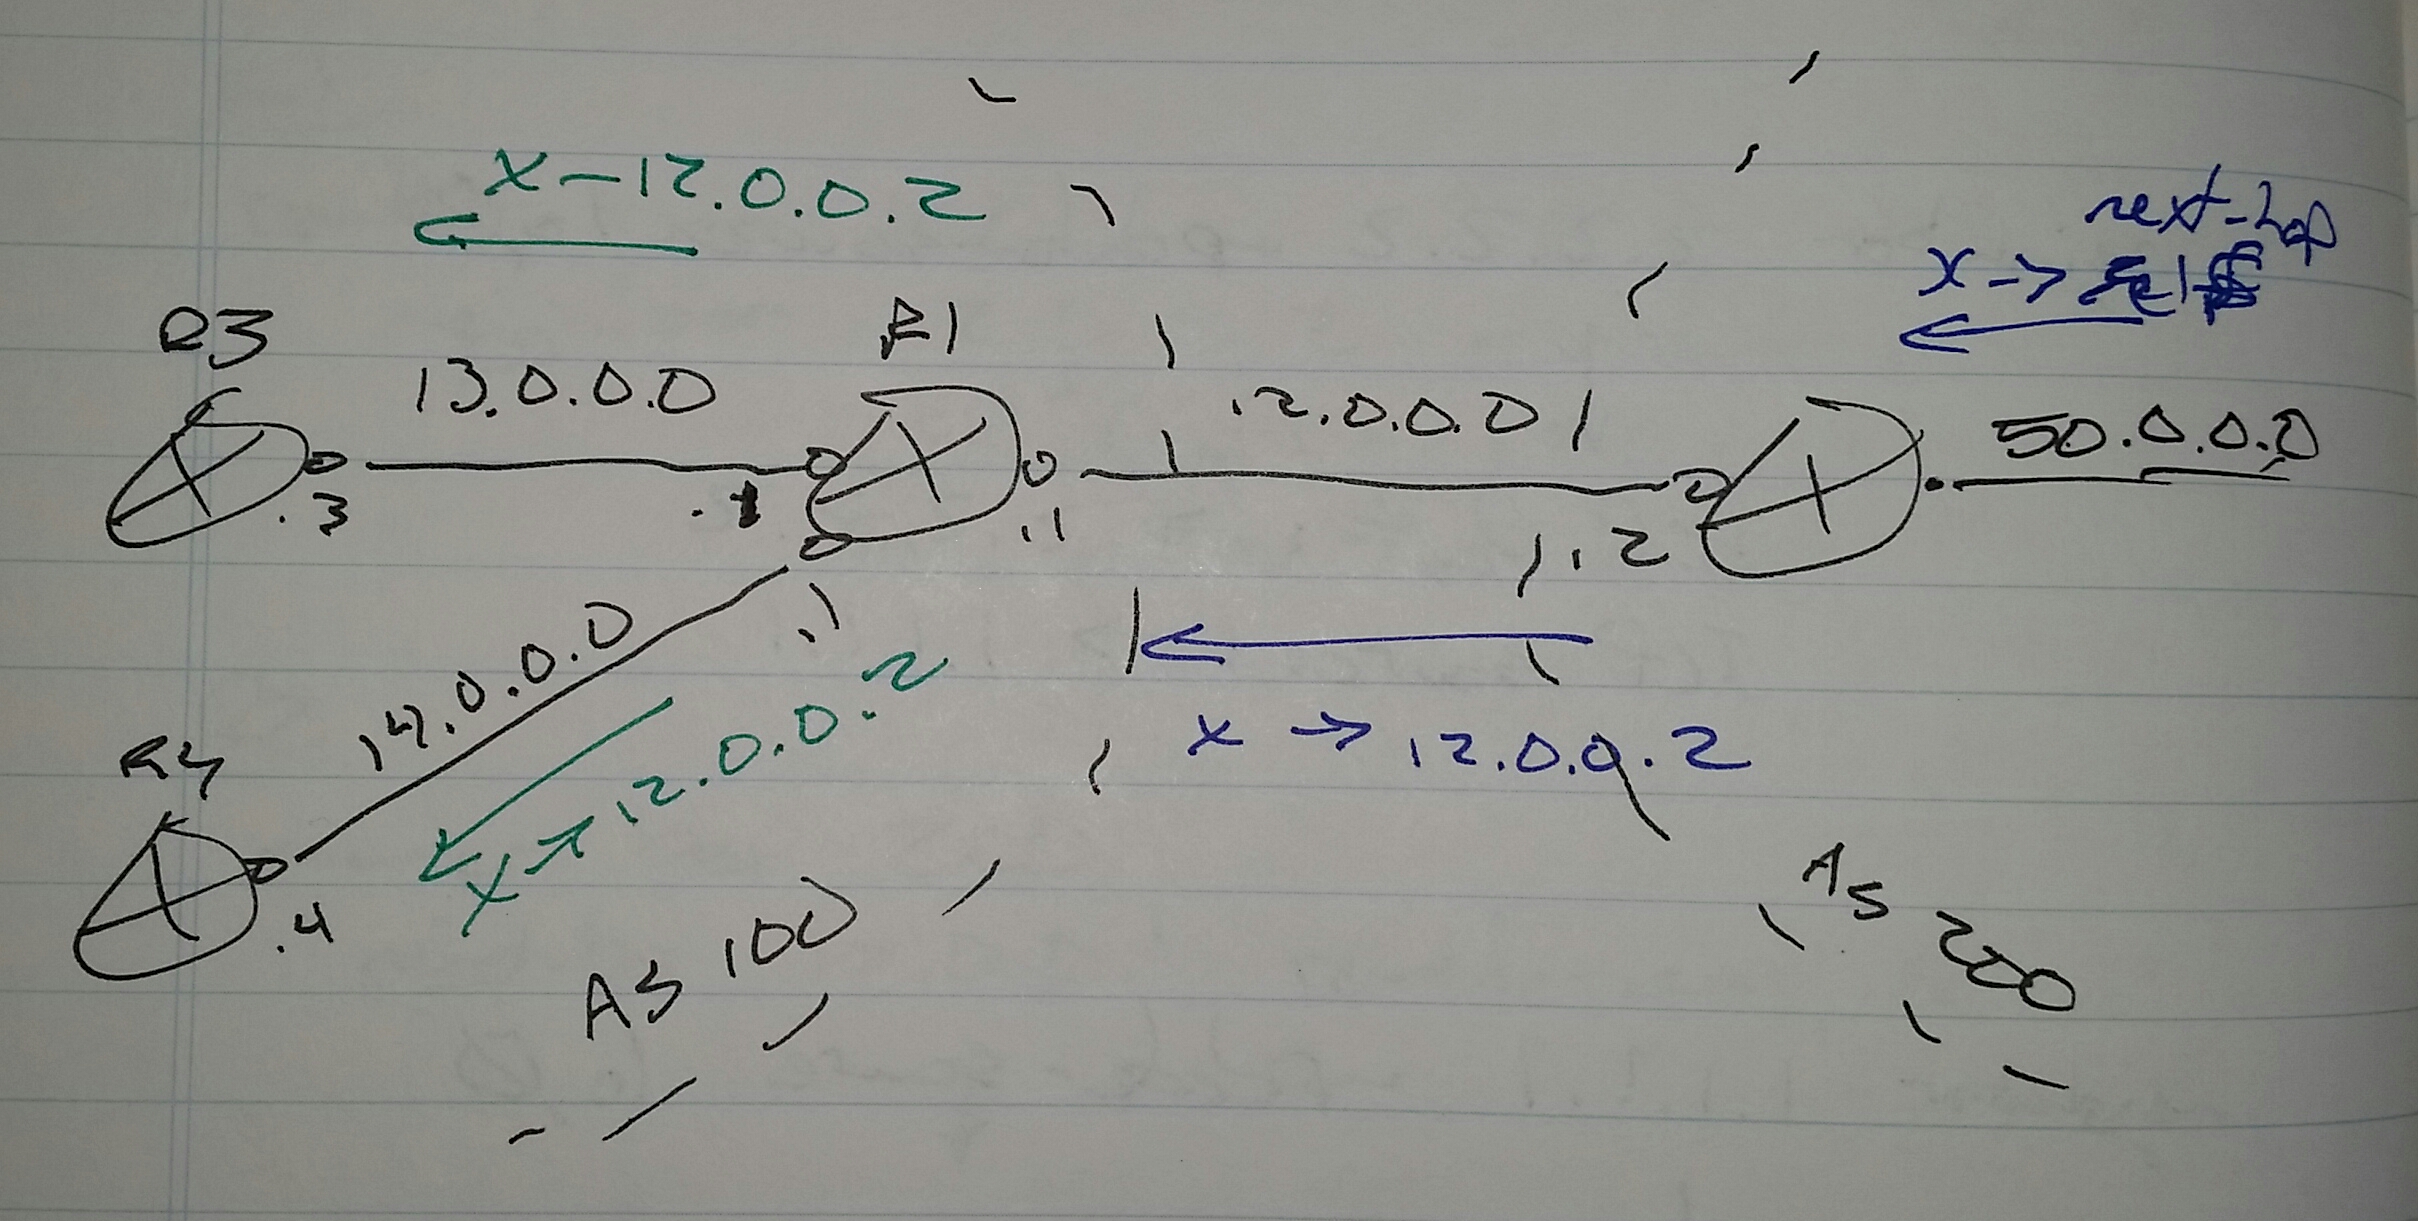 x-12.0.0.2
next-hop
x -> self
R3
R1
13.0.0.0
12.0.0.0
50.0.0.0
.3
.1
.1
.2
.1
14.0.0.0
x -> 12.0.0.2
x -> 12.0.0.2
R4
.4
AS 100
AS 200